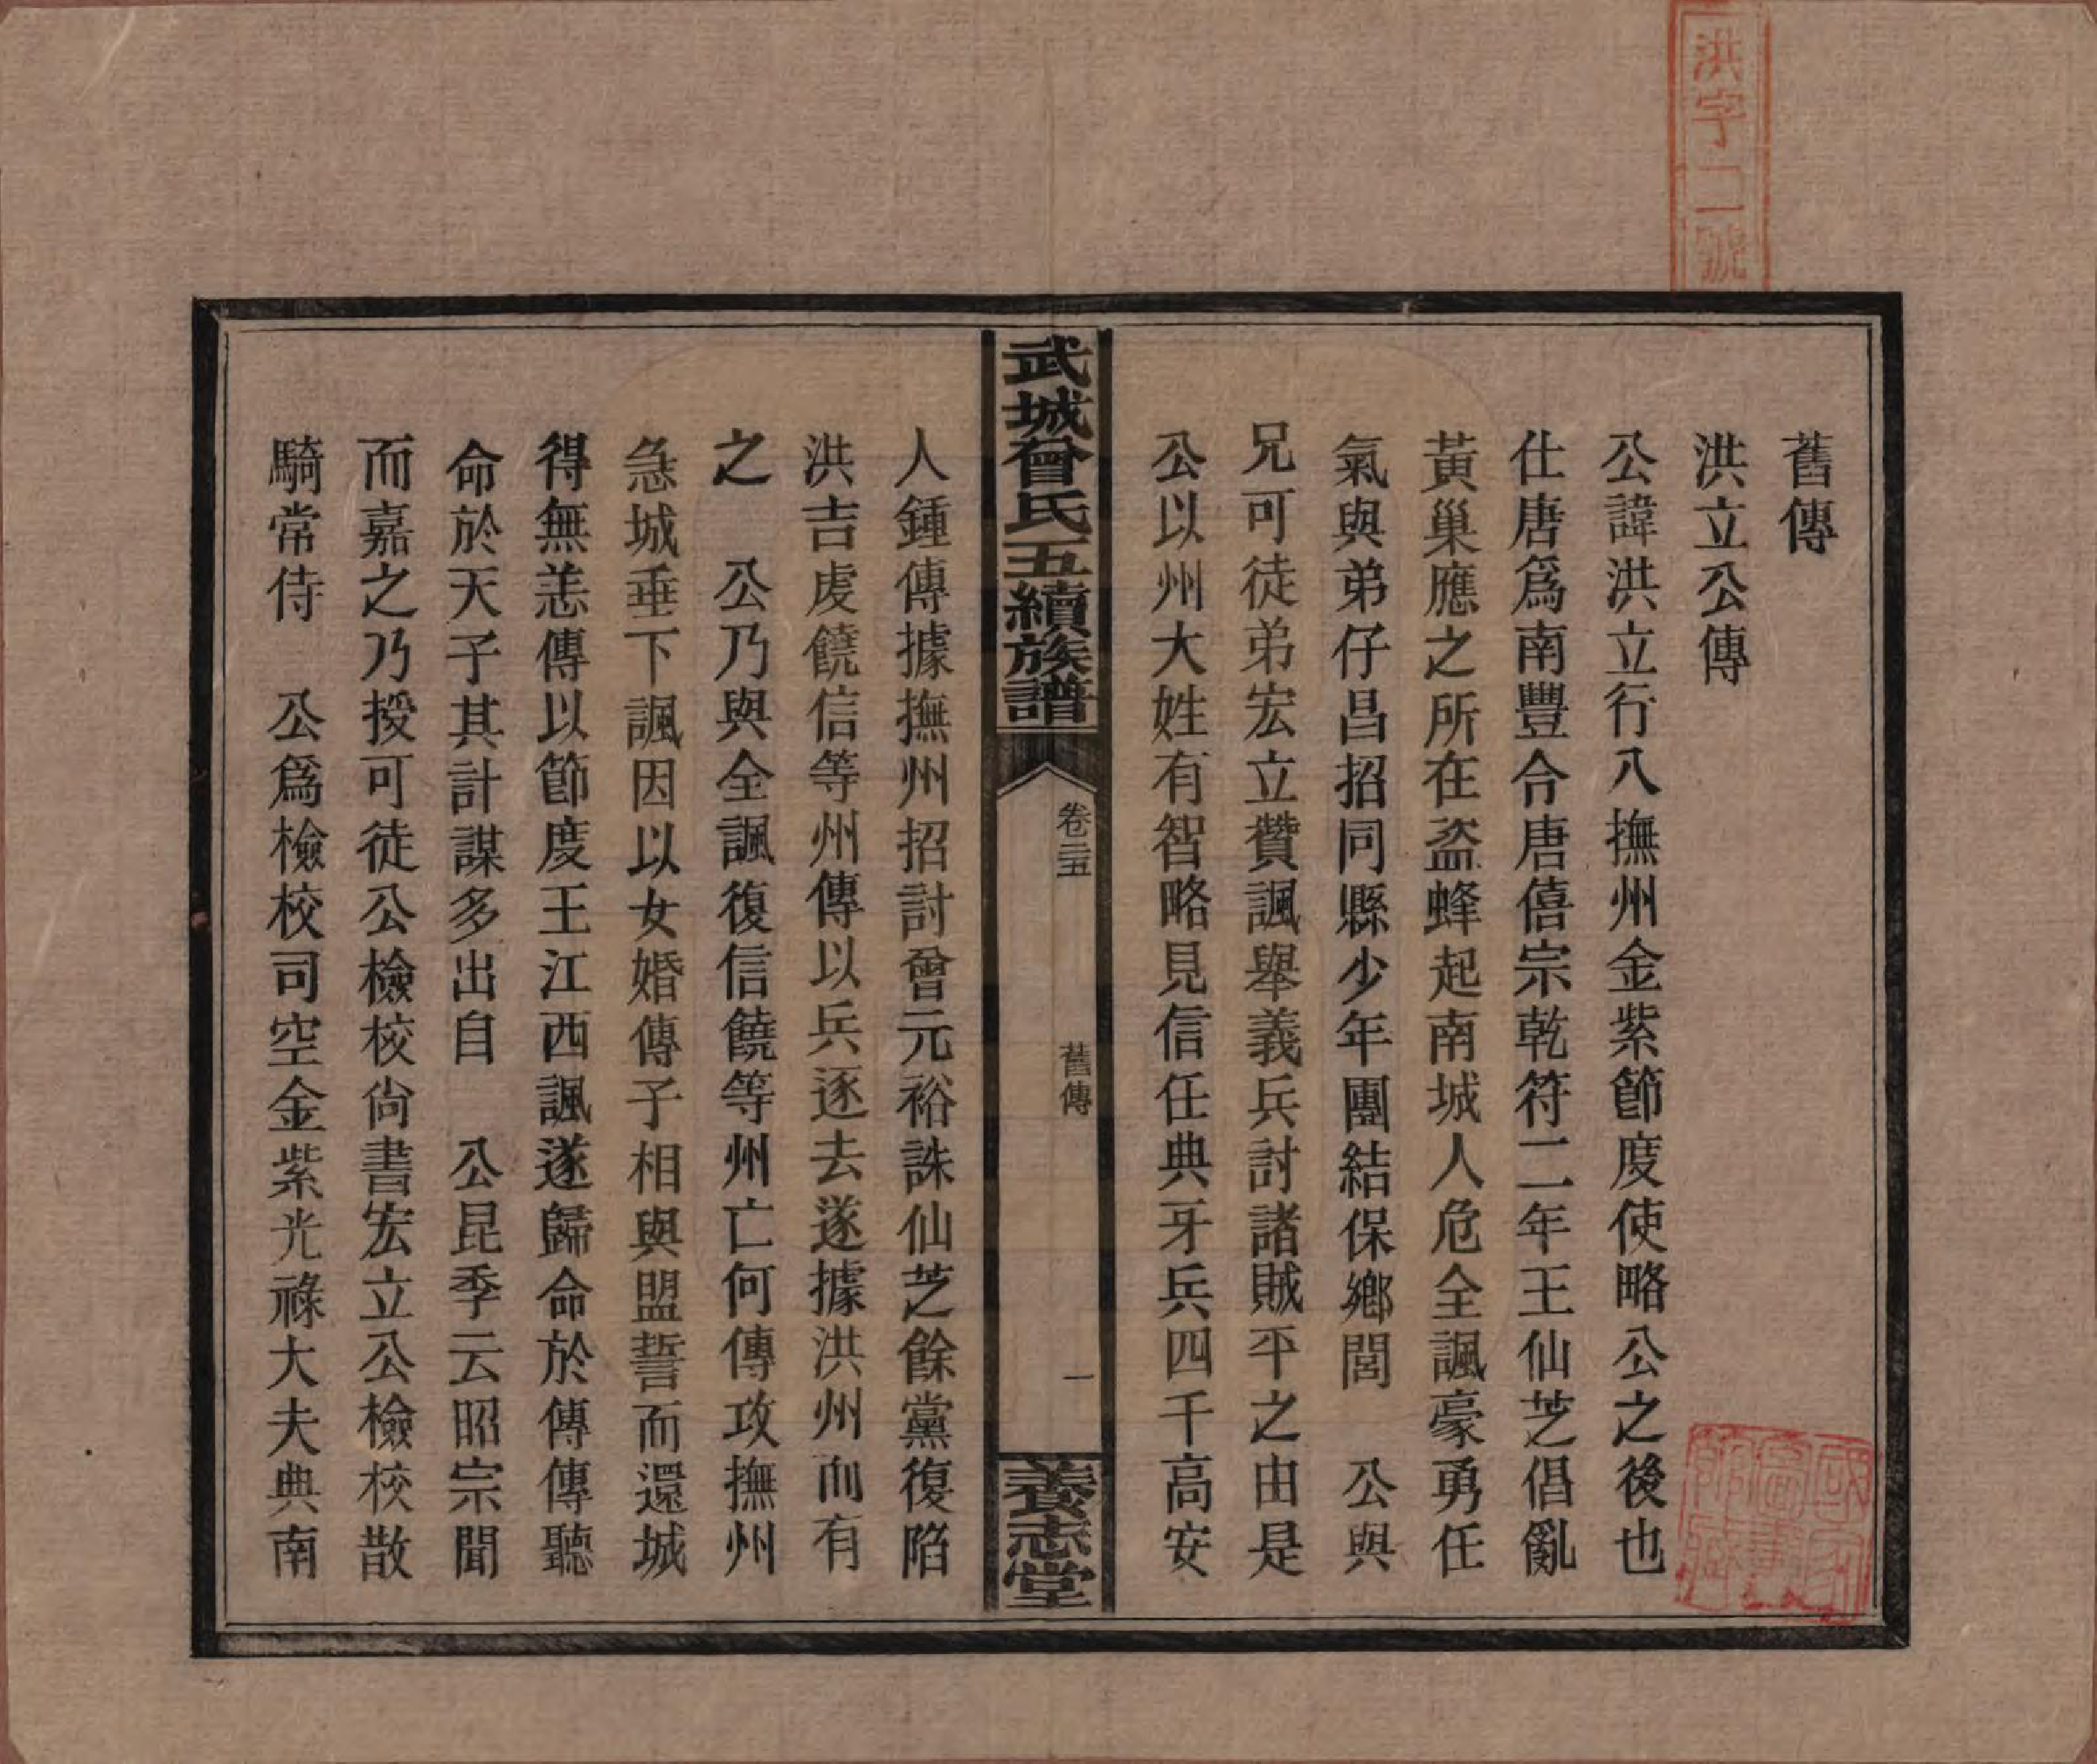 洪字二號
舊傳
洪立公傳
公諱洪立行八撫州金紫節度使略公之後也
仕唐爲南豐令唐僖宗乾符二年王仙芝倡亂
黃巢應之所在盜蜂起南城人危全諷豪勇任
氣與弟仔昌招同縣少年團結保鄉閭　公與
兄可徒弟宏立贊諷舉義兵討諸賊平之由是
公以州大姓有智略見信任典牙兵四千高安
武城曾氏五續族譜
卷三五
舊傳
一
養志堂
人鍾傳據撫州招討曾元裕誅仙芝餘黨復陷
洪吉虔饒信等州傳以兵逐去遂據洪州而有
之　公乃與全諷復信饒等州亡何傳攻撫州
急城垂下諷因以女婚傳子相與盟誓而還城
得無恙傳以節度王江西諷遂歸命於傳傳聽
命於天子其計謀多出自　公昆季云昭宗聞
而嘉之乃授可徒公檢校尙書宏立公檢校散
騎常侍　公爲檢校司空金紫光祿大夫典南